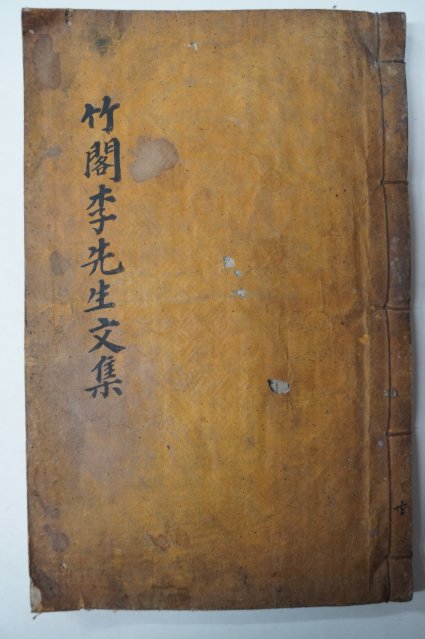 竹閣李先生文集